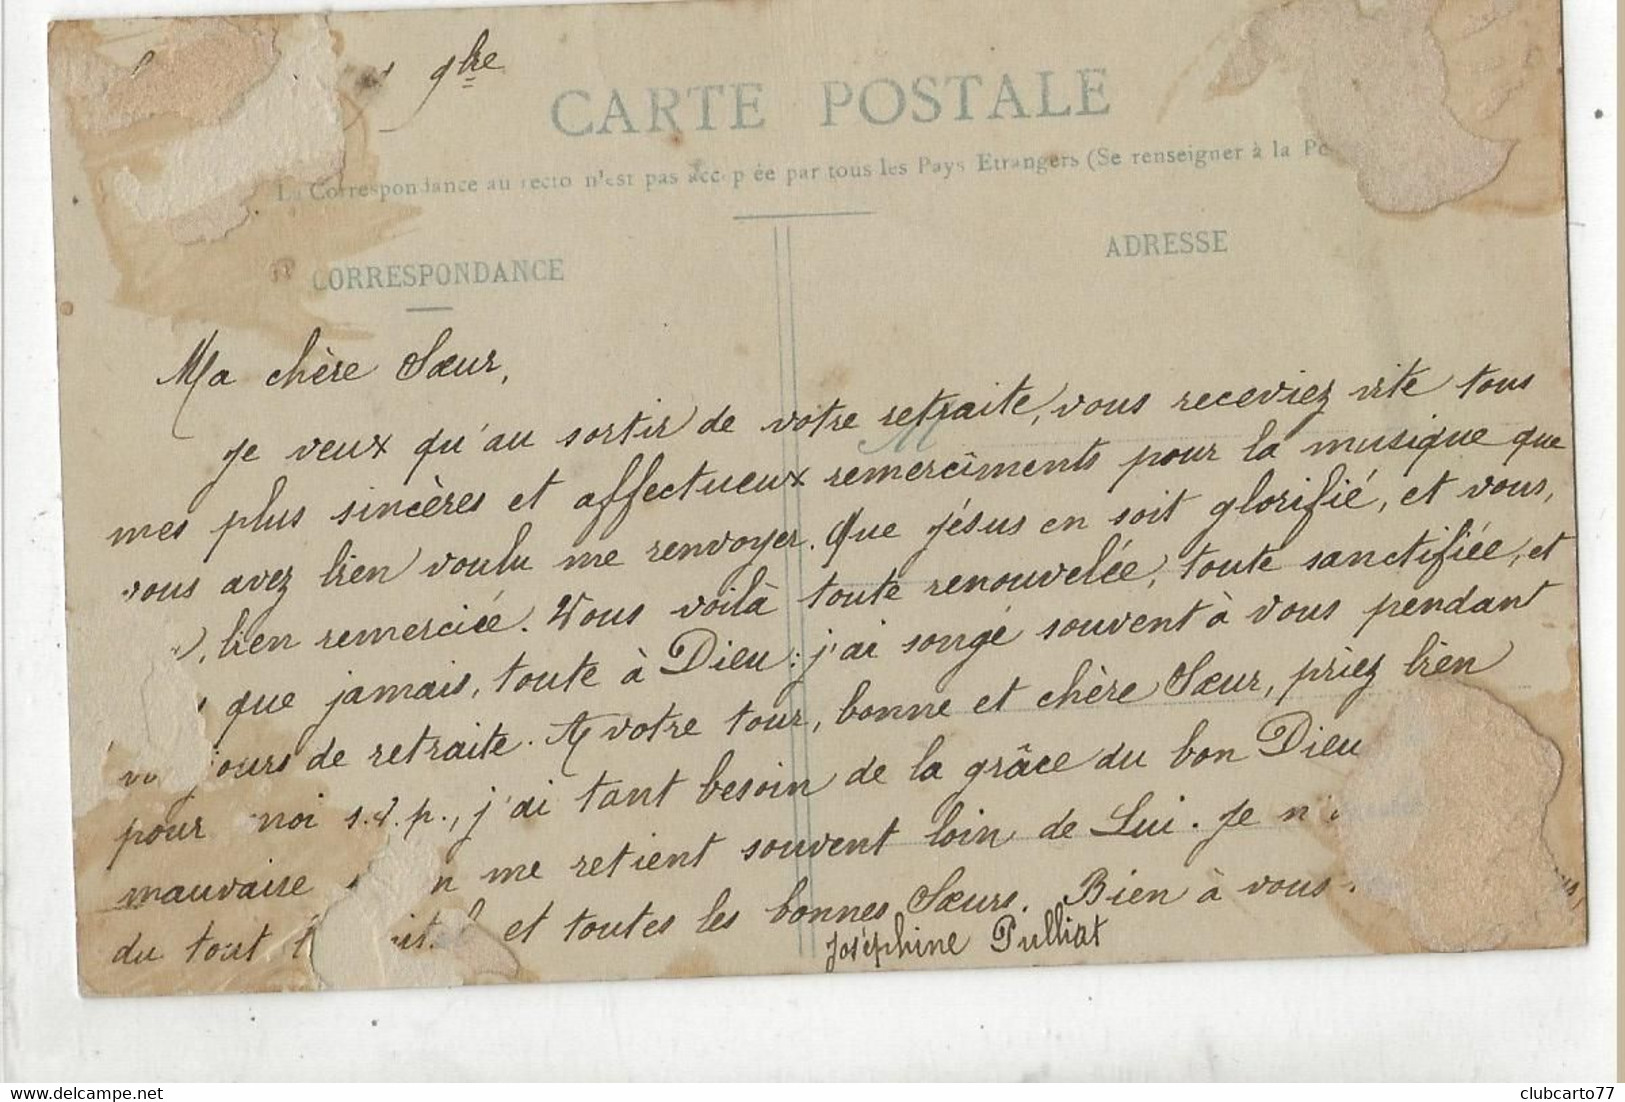 9bre
CARTE POSTALE
La Correspondance au recto n'est pas acceptée par tous les Pays Etrangers (Se renseigner à la Po
CORRESPONDANCE
ADRESSE
Ma chère Sœur,
Je veux qu'au sortir de votre retraite, vous receviez vite tous
mes plus sincères et affectueux remercîments pour la musique que
vous avez bien voulu me renvoyer. Que Jésus en soit glorifié, et vous,
bien remerciée. Vous voilà toute renouvelée, toute sanctifiée, et
que jamais, toute à Dieu : j'ai songé souvent à vous pendant
jours de retraite. A votre tour, bonne et chère Sœur, priez bien
pour moi s.v.p., j'ai tant besoin de la grâce du bon Dieu
mauvaise me retient souvent loin de Lui. Je n
du tout et toutes les bonnes Sœurs. Bien à vous
Joséphine Pulliat
clubcarto77